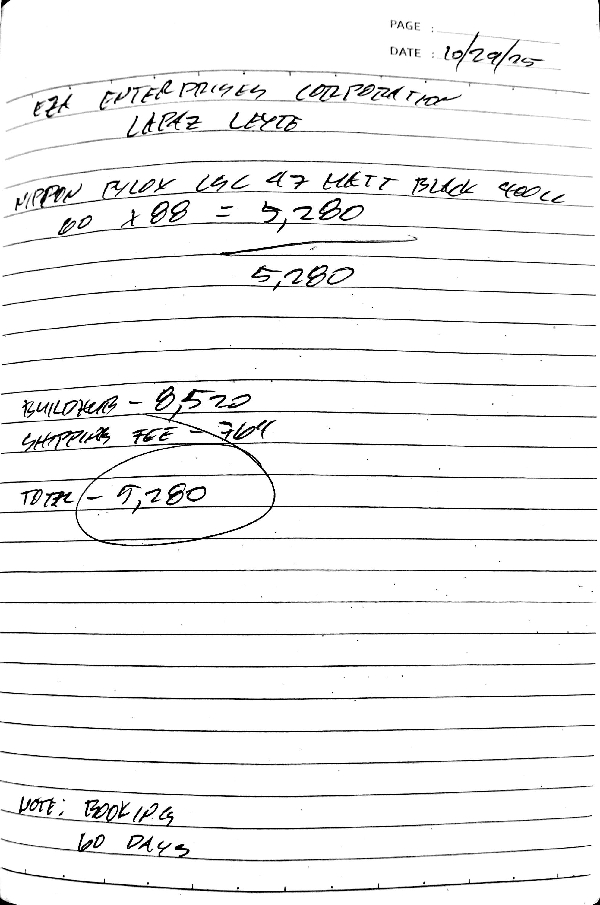 PAGE :
DATE : 10/29/25
EZK ENTERPRISES CORPORATION
LAPAZ LEYTE
NIPPON PYLOX LSC 47 MATT BLACK 400cc
60 x 88 = 5,280
5,280
BUILDHUB - 8,520
SHIPPING FEE - 764
TOTAL - 5,280
NOTE: BOOKING
60 DAYS